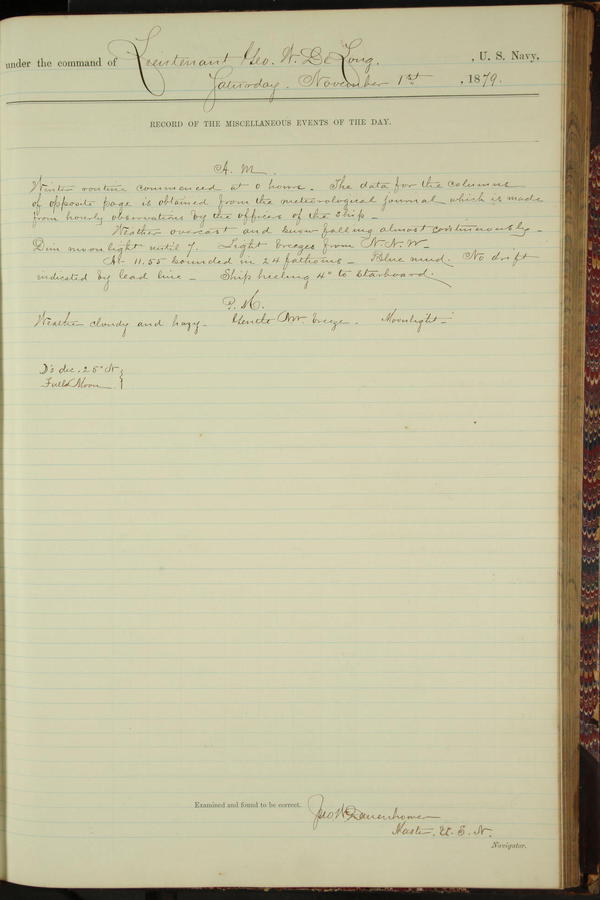 under the command of Lieutenant Geo. W. De Long, , U. S. Navy,
Saturday, November 1st , 1879.
RECORD OF THE MISCELLANEOUS EVENTS OF THE DAY.
A. M.
Winter routine commenced at 0 hour. The data for the columns
of opposite page is obtained from the meteorological journal which is made
from hourly observations by the officers of the ship.
Weather overcast and snow falling almost continuously.
Dim moonlight until 7. Light breezes from N.N.W.
At 11.55 sounded in 24 fathoms. Blue mud. No drift
indicated by lead line. Ship heeling 4° to starboard.
P. M.
Weather cloudy and hazy. Gentle NW. breeze. Moonlight.
D's dec. 25° N }
Full Moon }
Examined and found to be correct. Jno W Danenhower
Master, U. S. N.
Navigator.